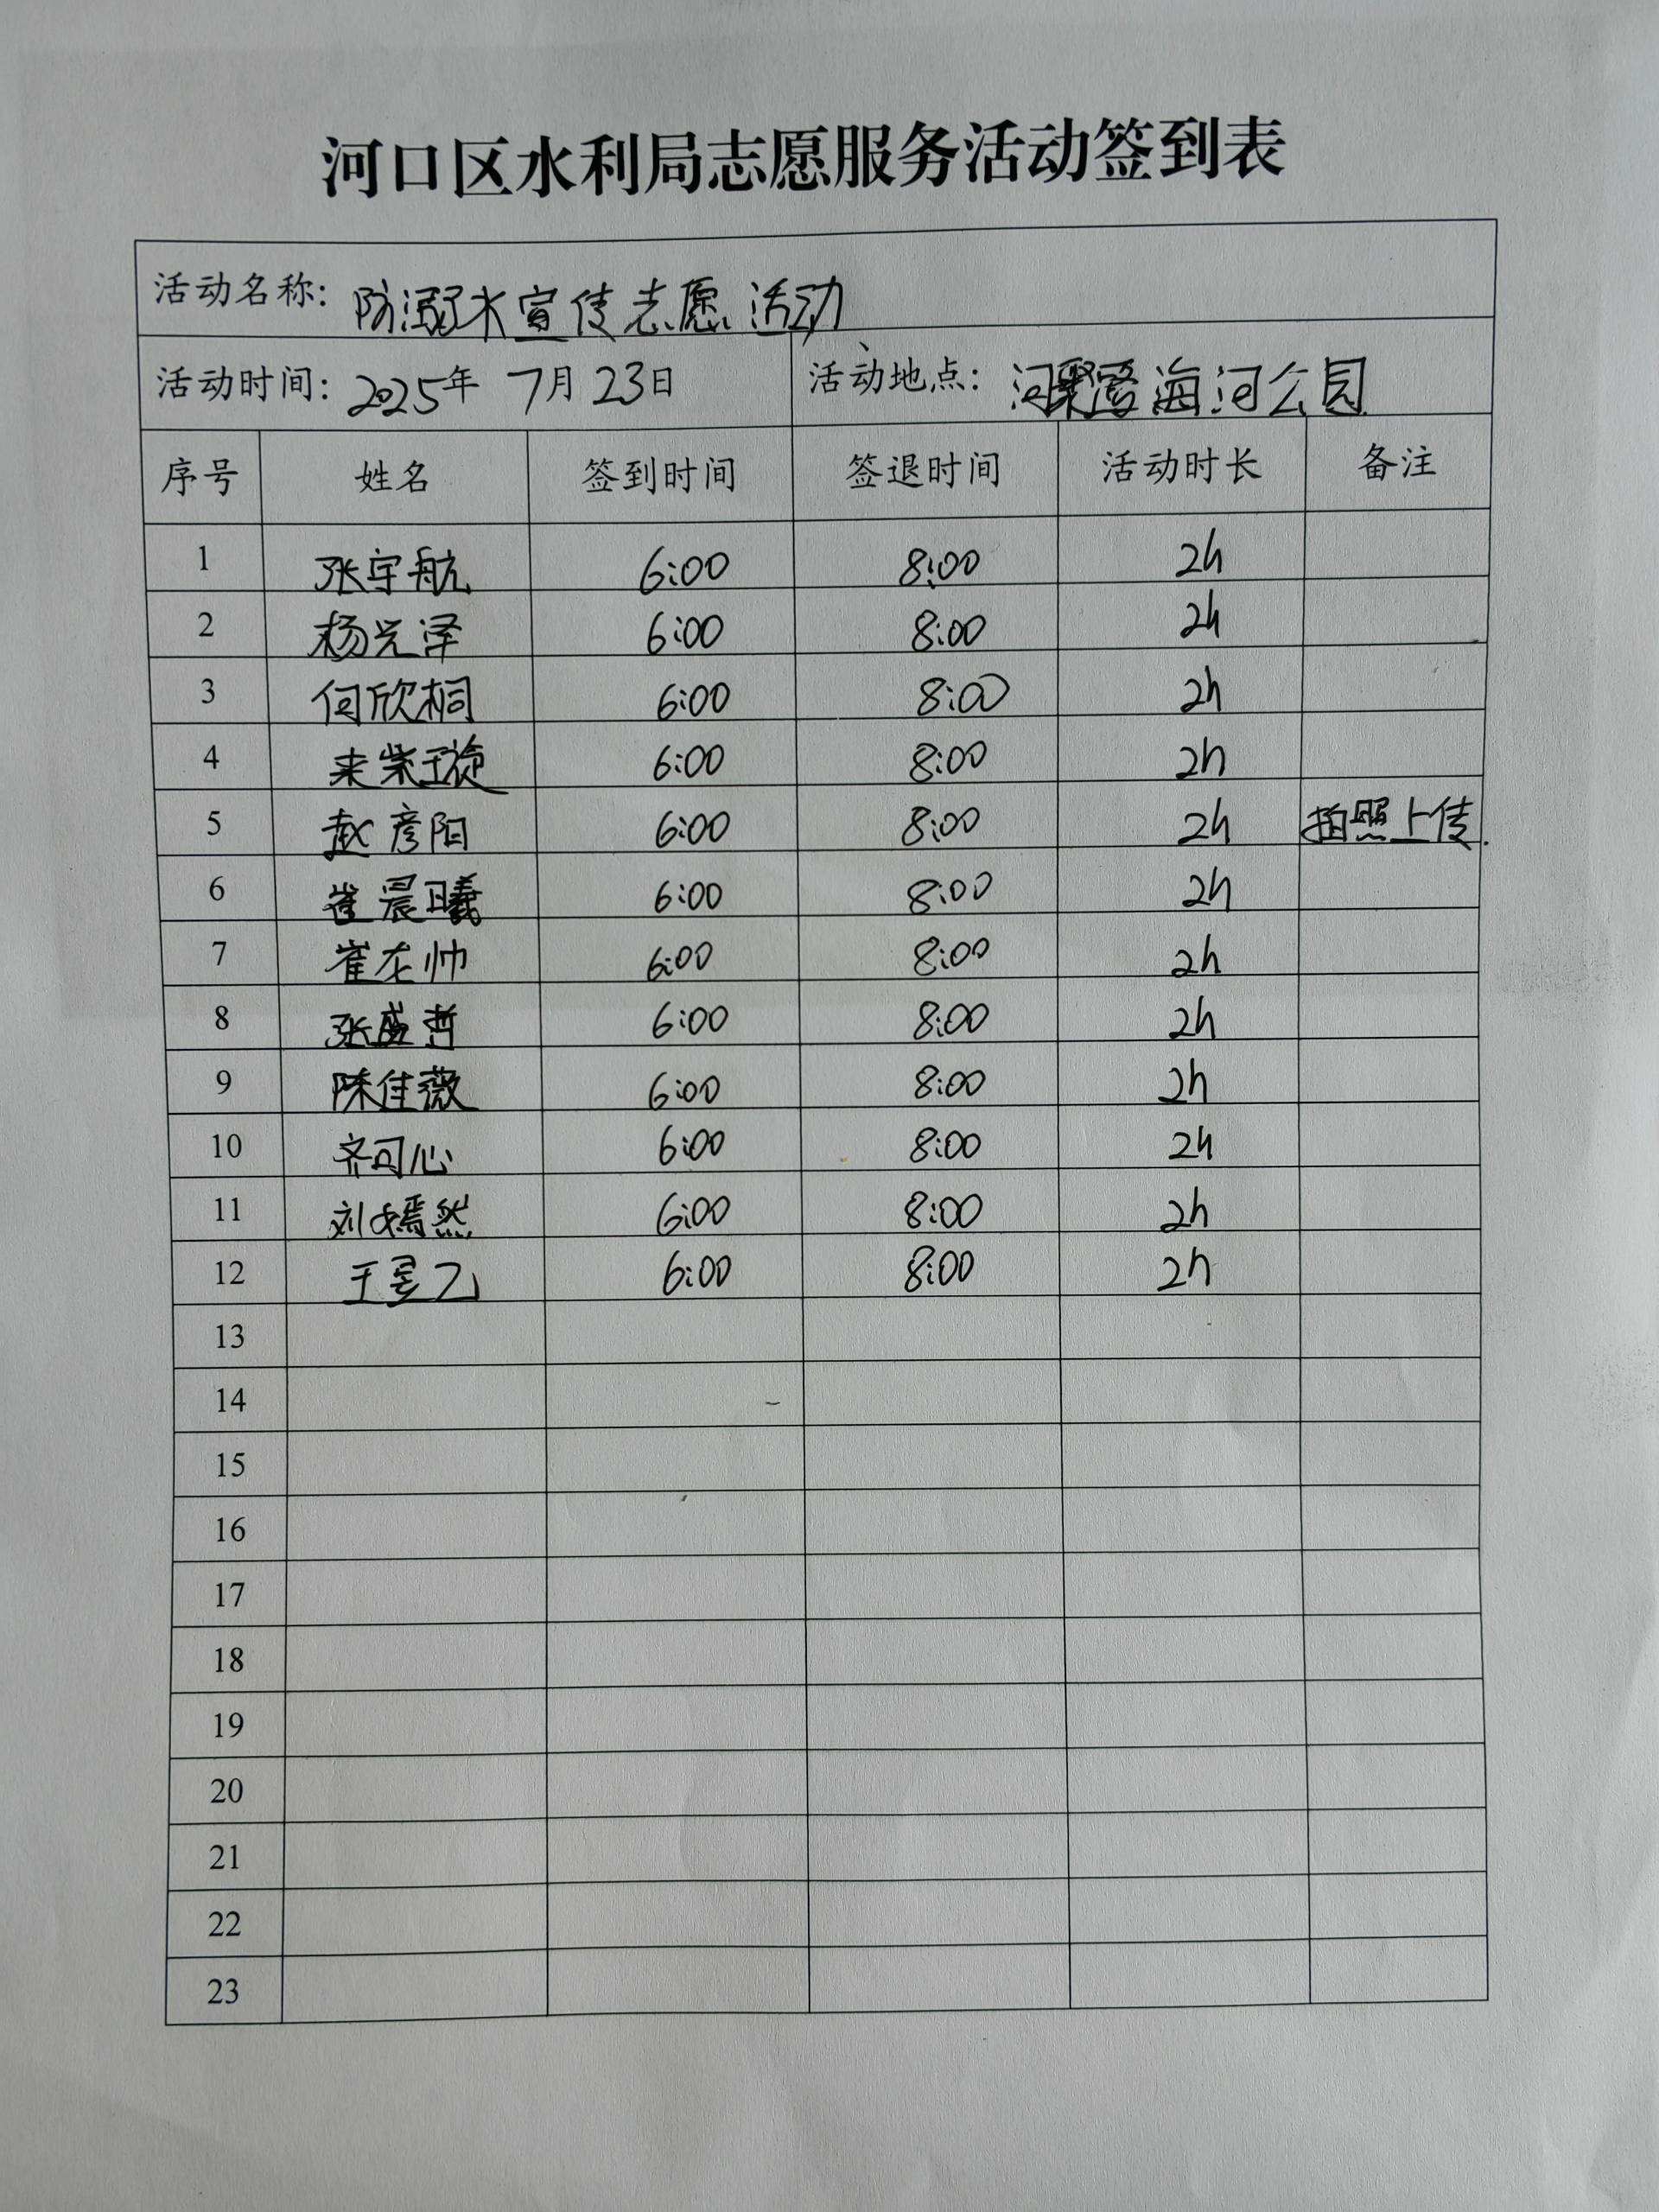 河口区水利局志愿服务活动签到表
活动名称: 防溺水宣传志愿活动
活动时间: 2025年 7月23日 活动地点: 海河公园
序号 姓名 签到时间 签退时间 活动时长 备注
1 张宇航 6:00 8:00 2h
2 杨光泽 6:00 8:00 2h
3 何欣桐 6:00 8:00 2h
4 来紫璇 6:00 8:00 2h
5 赵彦阳 6:00 8:00 2h 拍照上传.
6 崔晨曦 6:00 8:00 2h
7 崔左帅 6:00 8:00 2h
8 张盛哲 6:00 8:00 2h
9 陈佳薇 6:00 8:00 2h
10 齐可心 6:00 8:00 2h
11 刘嫣然 6:00 8:00 2h
12 6:00 8:00 2h
13
14
15
16
17
18
19
20
21
22
23